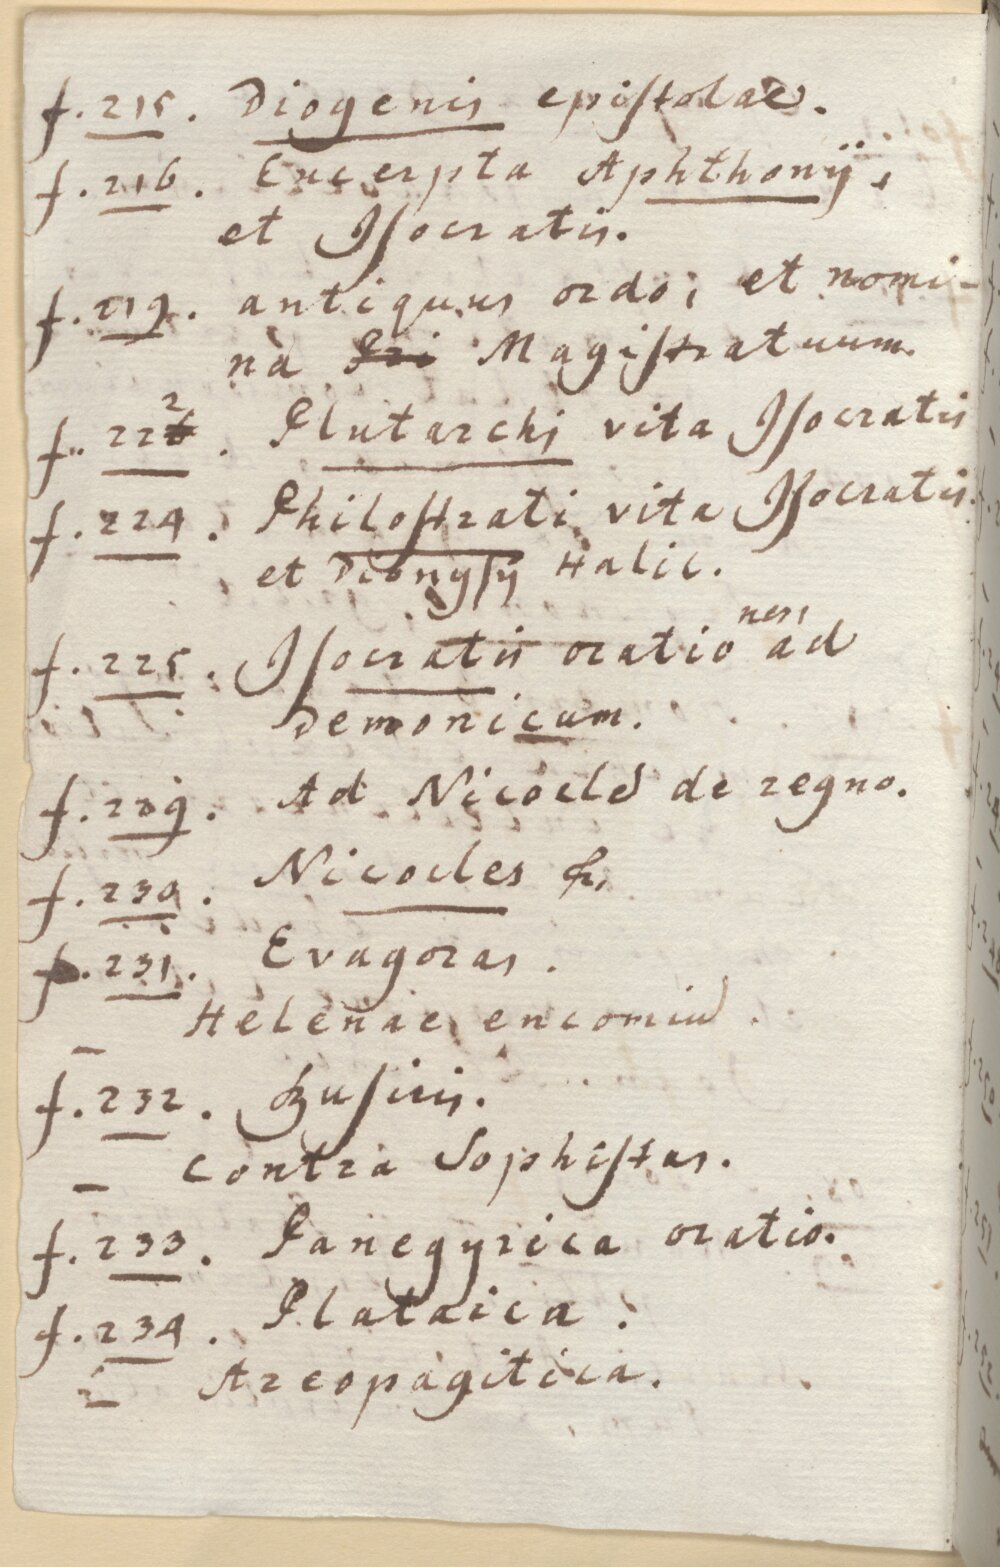 f. 215. Diogenis epistolae.
f. 216. Excerpta Aphthonij,
et Isocratis.
f. 219. antiquus ordo, et nomi-
na Magistratuum.
f. 222. Plutarchi vita Isocratis
f. 224. Philostrati vita Isocratis
et Dionysij Halic.
f. 225. Isocratis orationes ad
Demonicum.
f. 229. Ad Nicoclē de regno.
f. 230. Nicocles
f. 231. Evagoras.
_ Helenae encomiū.
f. 232. Busiris.
_ contra Sophistas.
f. 233. Panegyrica oratio.
f. 234. Plataica.
_ Areopagitica.